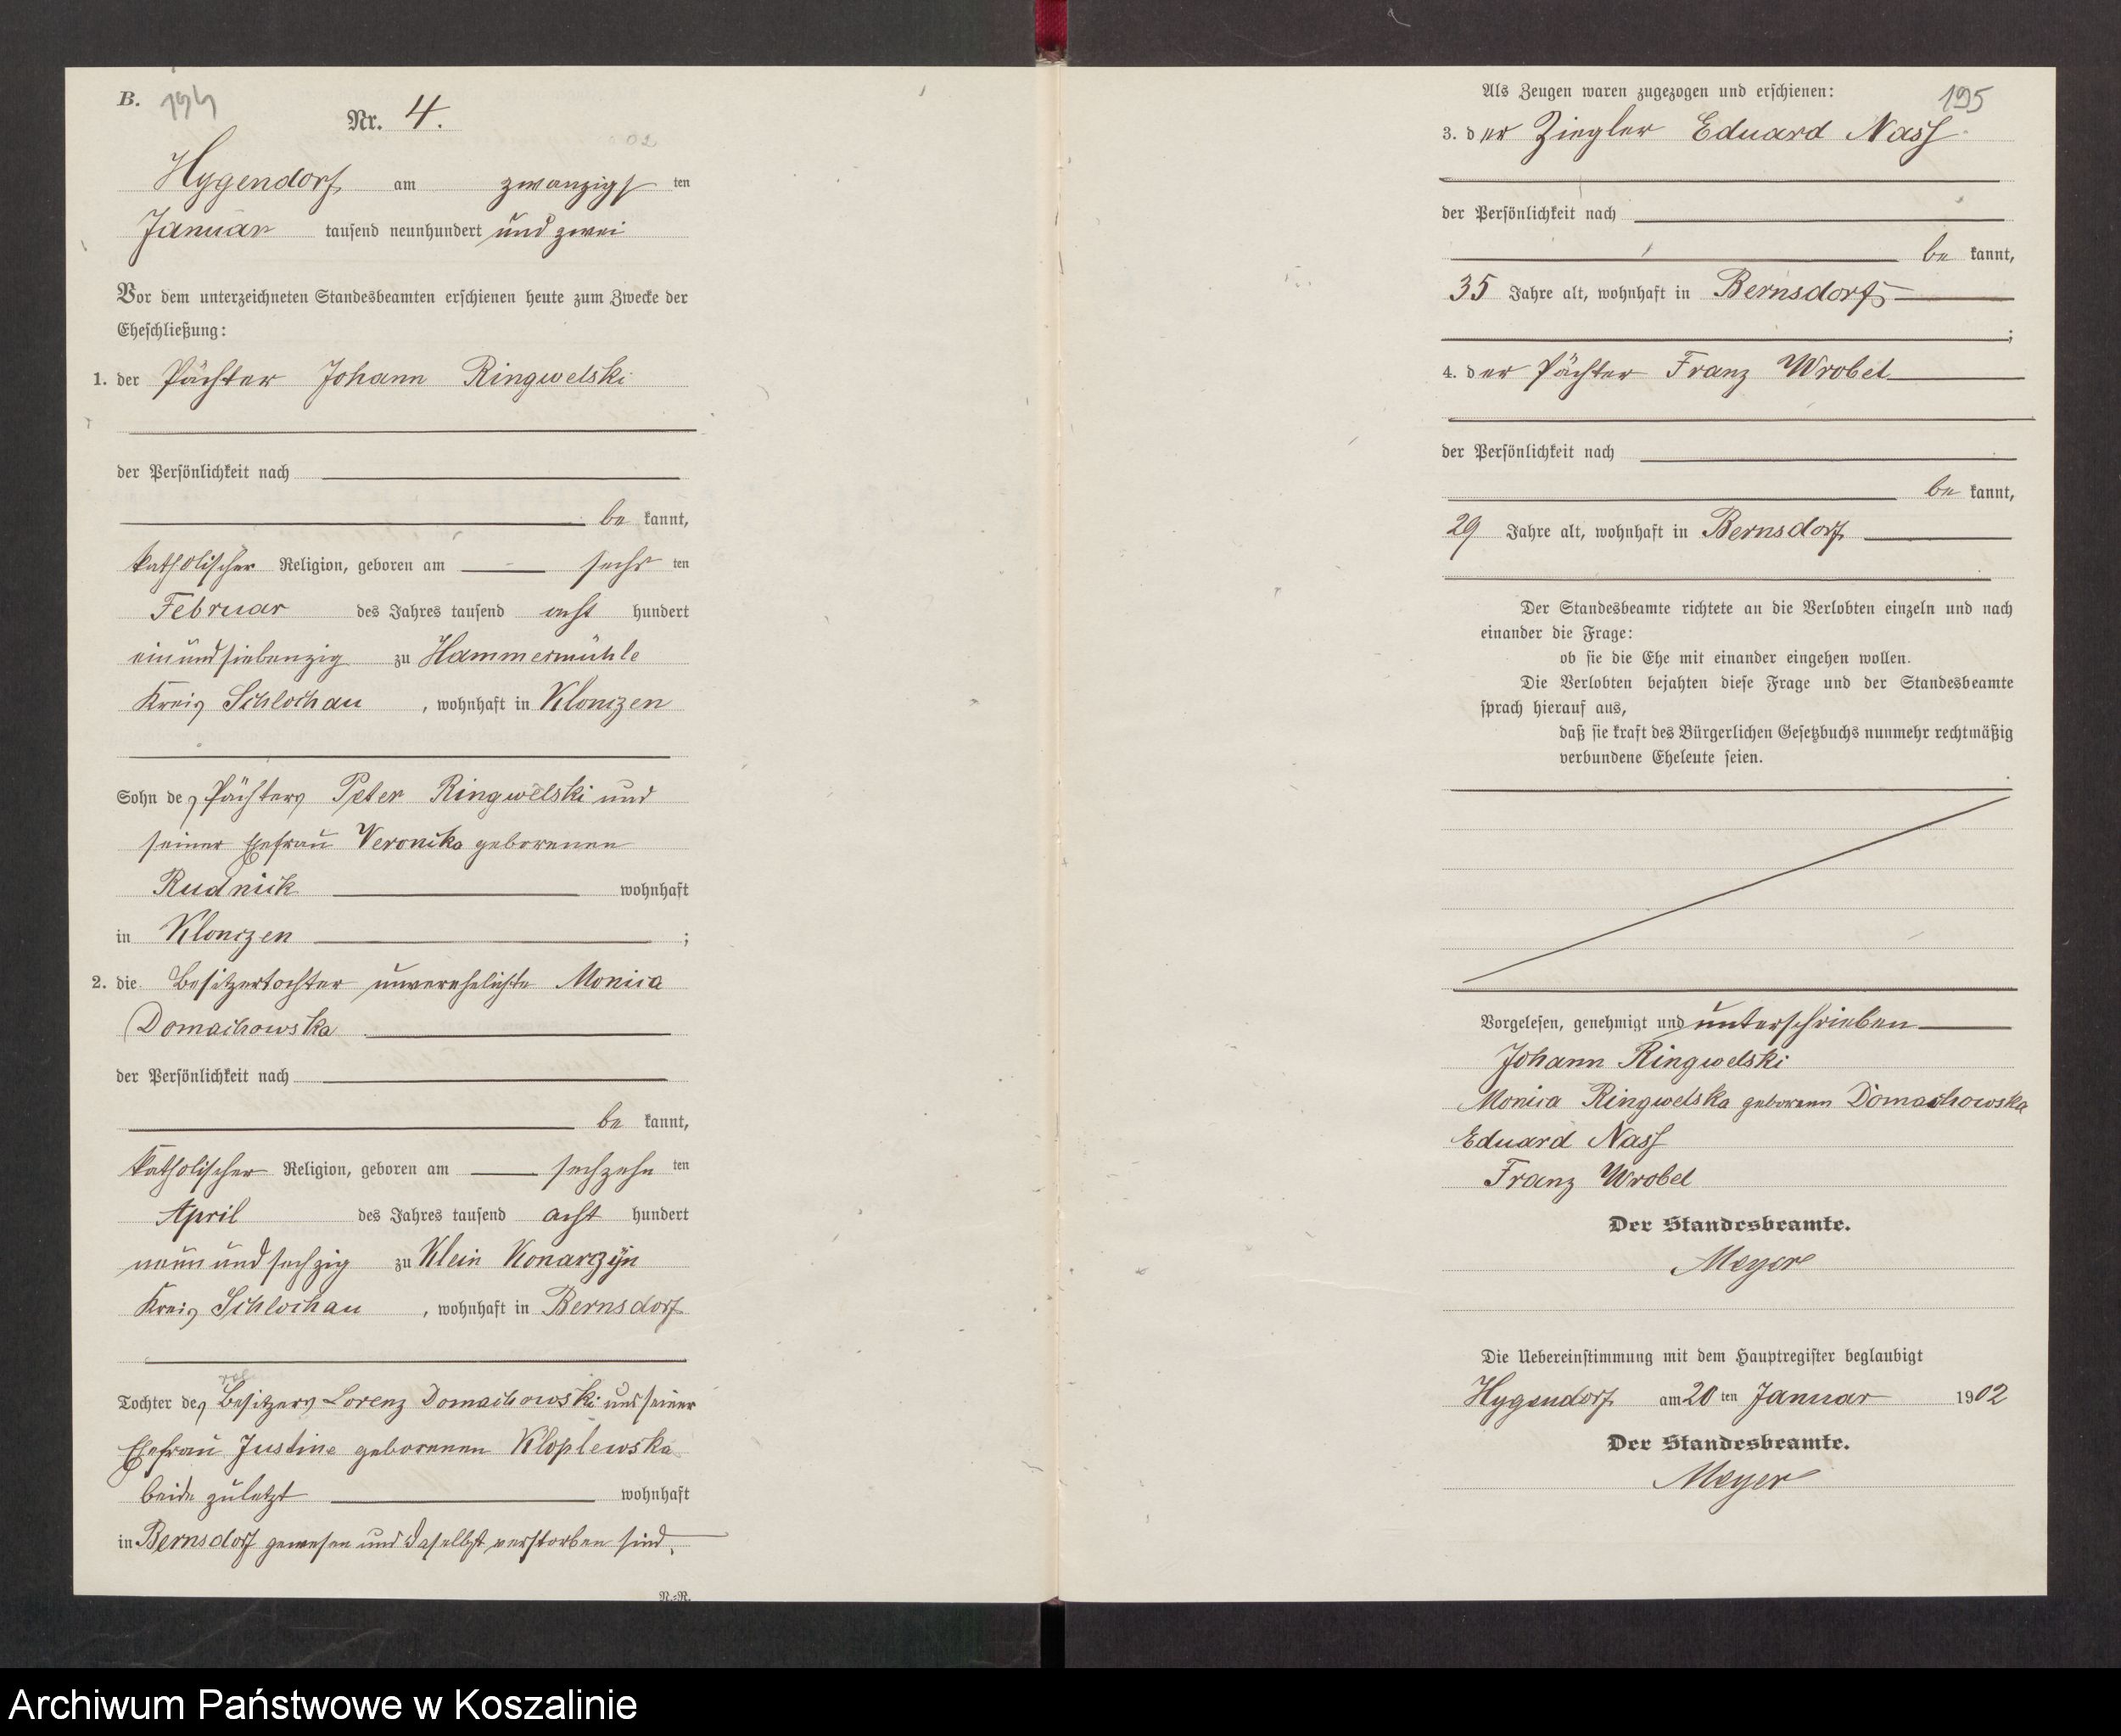 B. 194
Nr. 4.
Hygendorf am zwanzigsten
Januar tausend neunhundert und zwei
Vor dem unterzeichneten Standesbeamten erschienen heute zum Zwecke der
Eheschließung:
1. der Pächter Johann Ringwelski
der Persönlichkeit nach
be kannt,
katholischer Religion, geboren am sechs ten
Februar des Jahres tausend acht hundert
einundsiebenzig zu Hammermühle
Kreis Schlochau, wohnhaft in Klonczen
Sohn des Pächters Peter Ringwelski und
seiner Ehefrau Veronika geborenen
Rudnick wohnhaft
in Klonczen ;
2. die Besitzertochter unverehelichte Monica
Domachowska
der Persönlichkeit nach
be kannt,
katholischer Religion, geboren am sechzehn ten
April des Jahres tausend acht hundert
neunundsechzig zu Klein Konarczyn
Kreis Schlochau, wohnhaft in Bernsdorf
Tochter des Besitzers Lorenz Domachowski und seiner
Ehefrau Justine geborenen Kloplewska
beide zuletzt wohnhaft
in Bernsdorf gewesen und daselbst verstorben sind.
N.-R.
195
Als Zeugen waren zugezogen und erschienen:
3. der Ziegler Eduard Nass
der Persönlichkeit nach
be kannt,
35 Jahre alt, wohnhaft in Bernsdorf
;
4. der Pächter Franz Wrobel
der Persönlichkeit nach
be kannt,
29 Jahre alt, wohnhaft in Bernsdorf
Der Standesbeamte richtete an die Verlobten einzeln und nach
einander die Frage:
ob sie die Ehe mit einander eingehen wollen.
Die Verlobten bejahten diese Frage und der Standesbeamte
sprach hierauf aus,
daß sie kraft des Bürgerlichen Gesetzbuchs nunmehr rechtmäßig
verbundene Eheleute seien.
Vorgelesen, genehmigt und unterschrieben
Johann Ringwelski
Monica Ringwelska geborenen Domachowska
Eduard Nass
Franz Wrobel
Der Standesbeamte.
Meyer
Die Uebereinstimmung mit dem Hauptregister beglaubigt
Hygendorf am 20 ten Januar 1902
Der Standesbeamte.
Meyer
Archiwum Państwowe w Koszalinie